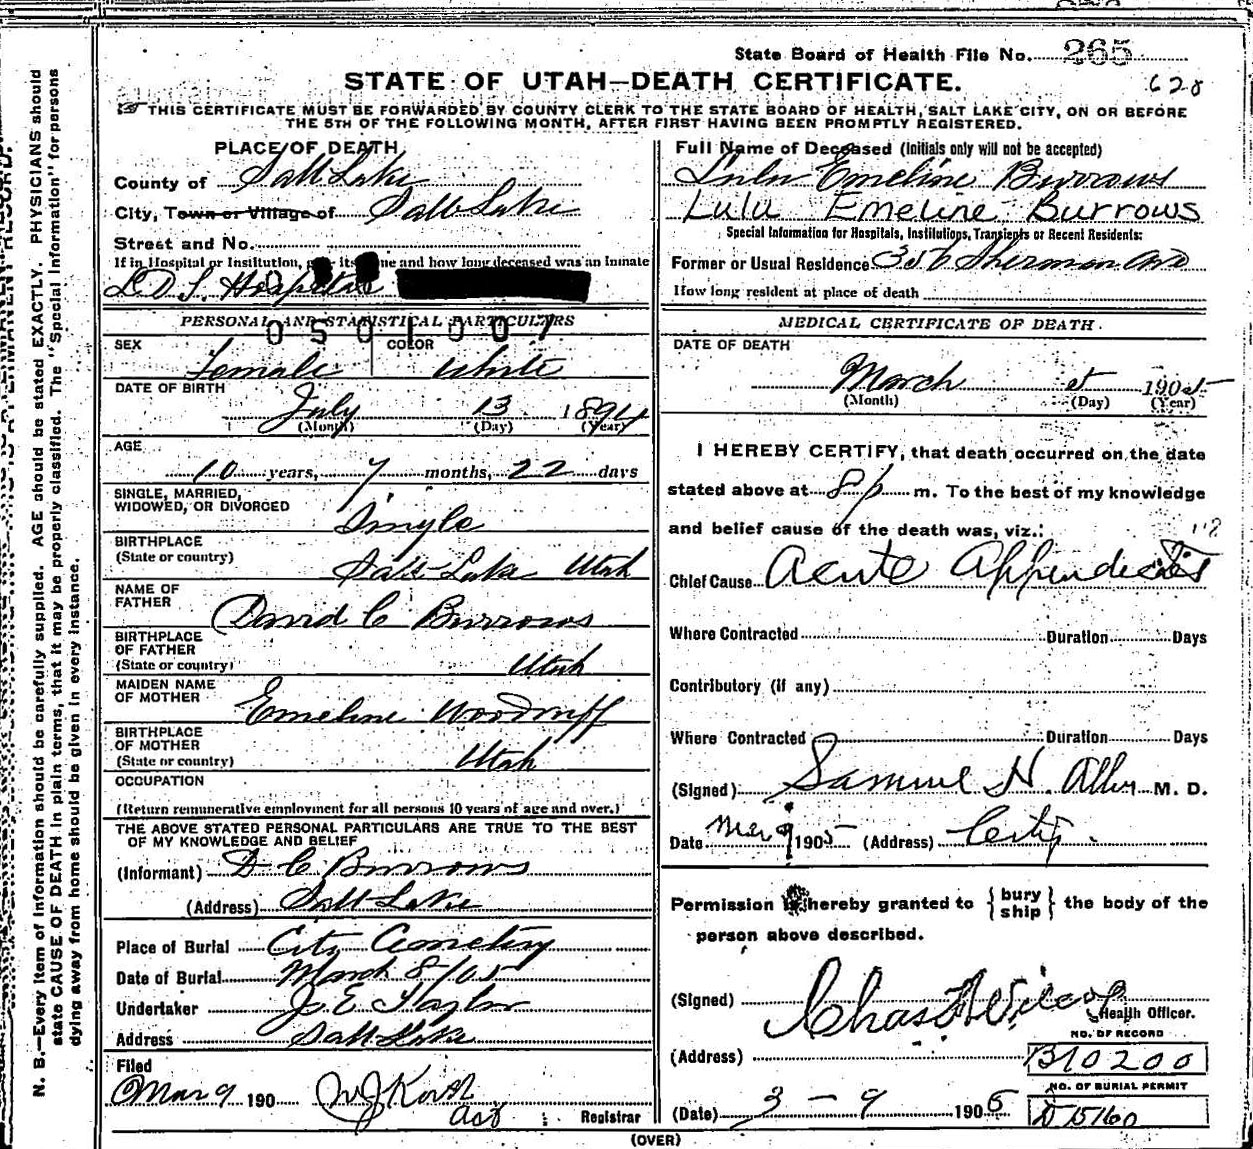 State Board of Health File No. 265
STATE OF UTAH—DEATH CERTIFICATE.
628
THIS CERTIFICATE MUST BE FORWARDED BY COUNTY CLERK TO THE STATE BOARD OF HEALTH, SALT LAKE CITY, ON OR BEFORE
THE 5TH OF THE FOLLOWING MONTH, AFTER FIRST HAVING BEEN PROMPTLY REGISTERED.
N. B.—Every item of information should be carefully supplied. AGE should be stated EXACTLY. PHYSICIANS should
state CAUSE OF DEATH in plain terms, that it may be properly classified. The "Special Information" for persons
dying away from home should be given in every instance.
PLACE OF DEATH
County of Salt Lake
City, Town or Village of Salt Lake
Street and No.
If in Hospital or Institution, its and how long deceased was an Inmate
L D S. Hospital
PERSONAL AND STATISTICAL PARTICULARS
0501007
SEX Female
COLOR White
DATE OF BIRTH
July 13 1894
(Month) (Day) (Year)
AGE
10 years, 7 months, 22 days
SINGLE, MARRIED,
WIDOWED, OR DIVORCED
Single
BIRTHPLACE
(State or country)
Salt Lake Utah
NAME OF
FATHER
David C Burrows
BIRTHPLACE
OF FATHER
(State or country)
Utah
MAIDEN NAME
OF MOTHER
Emeline Woodruff
BIRTHPLACE
OF MOTHER
(State or country)
Utah
OCCUPATION
(Return remunerative employment for all persons 10 years of age and over.)
THE ABOVE STATED PERSONAL PARTICULARS ARE TRUE TO THE BEST
OF MY KNOWLEDGE AND BELIEF
(Informant) D C Burrows
(Address) Salt Lake
Place of Burial City Cemetery
Date of Burial March 8/05
Undertaker J. E Taylor
Address Salt Lake
Filed
Mar 9 190
Registrar
Full Name of Deceased (Initials only will not be accepted)
Lulu Emeline Burrows
Lulu Emeline Burrows
Special Information for Hospitals, Institutions, Transients or Recent Residents:
Former or Usual Residence 356 Sherman Ave
How long resident at place of death
MEDICAL CERTIFICATE OF DEATH.
DATE OF DEATH
March 5 1905
(Month) (Day) (Year)
I HEREBY CERTIFY, that death occurred on the date
stated above at 8 p m. To the best of my knowledge
and belief cause of the death was, viz.:
Chief Cause Acute Appendicitis
Where Contracted Duration Days
Contributory (if any)
Where Contracted Duration Days
(Signed) Samuel H. Allen M. D.
Date Mar 9 1905 (Address) City.
Permission is hereby granted to { bury ship } the body of the
person above described.
(Signed) Chas F Wilcox
Health Officer.
NO. OF RECORD
(Address) B10200
NO. OF BURIAL PERMIT
(Date) 3 - 9 1905 D 15160
(OVER)